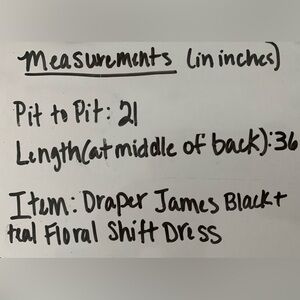 Measurements (in inches)
Pit to Pit: 21
Length(at middle of back): 36
Item: Draper James Black +
teal Floral Shift Dress